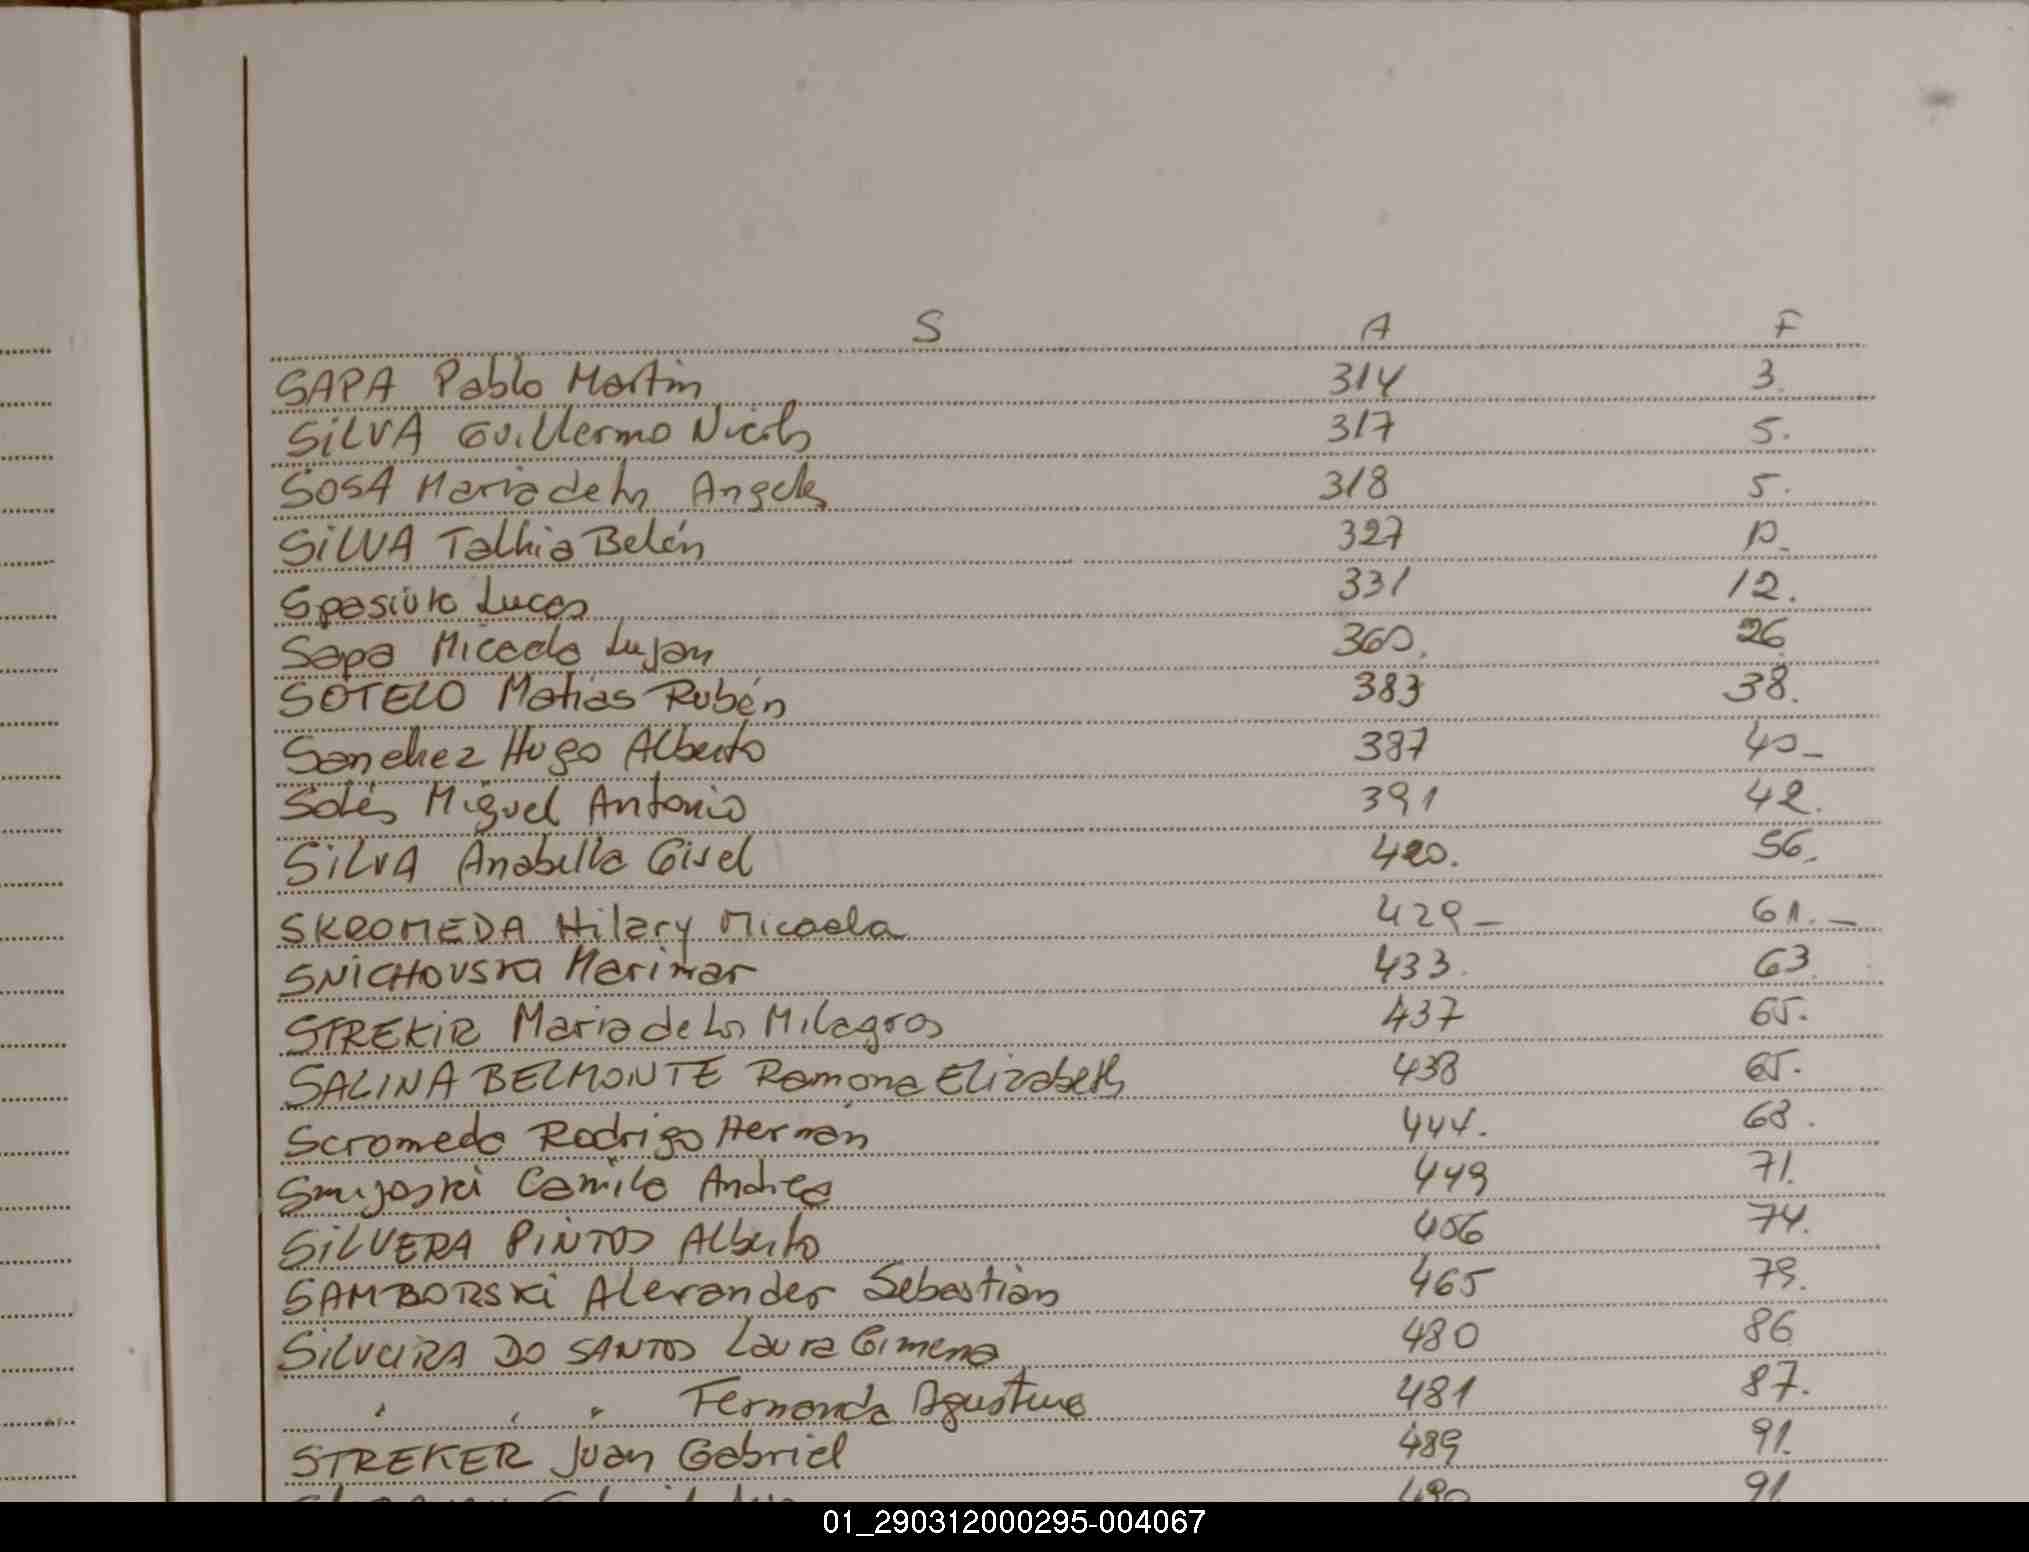 S A F
SAPA Pablo Martin 314 3.
SiLVA Guillermo Nicolas 317 5.
SOSA Maria de los Angeles 318 5.
SiLVA Talhia Belén 327 10_
Spasiuk Lucas 331 12.
Sapa Micaela Lujan 360. 26
SOTELO Matias Rubén 383 38.
Sanchez Hugo Alberto 387 40_
Solis Miguel Antonio 391 42.
SiLVA Anabella Gisel 420. 56.
SKROMEDA Hilary Micaela 429_ 61._
SNICHOVSKi Marimar 433. 63.
STREKiR Maria de los Milagros 437 65.
SALINA BELMONTE Ramona Elizabeth 438 65.
Scromeda Rodrigo Hernán 444. 68.
Camila Andrea 449 71.
SiLVERA PiNTOS Alberto 456 74.
SAMBORSKi Alexander Sebastián 465 79.
SiLVEiRA DO SANTOS Laura Gimena 480 86
" " " Fernanda Agustina 481 87.
STREKER Juan Gabriel 489 91.
490 91
01_290312000295-004067